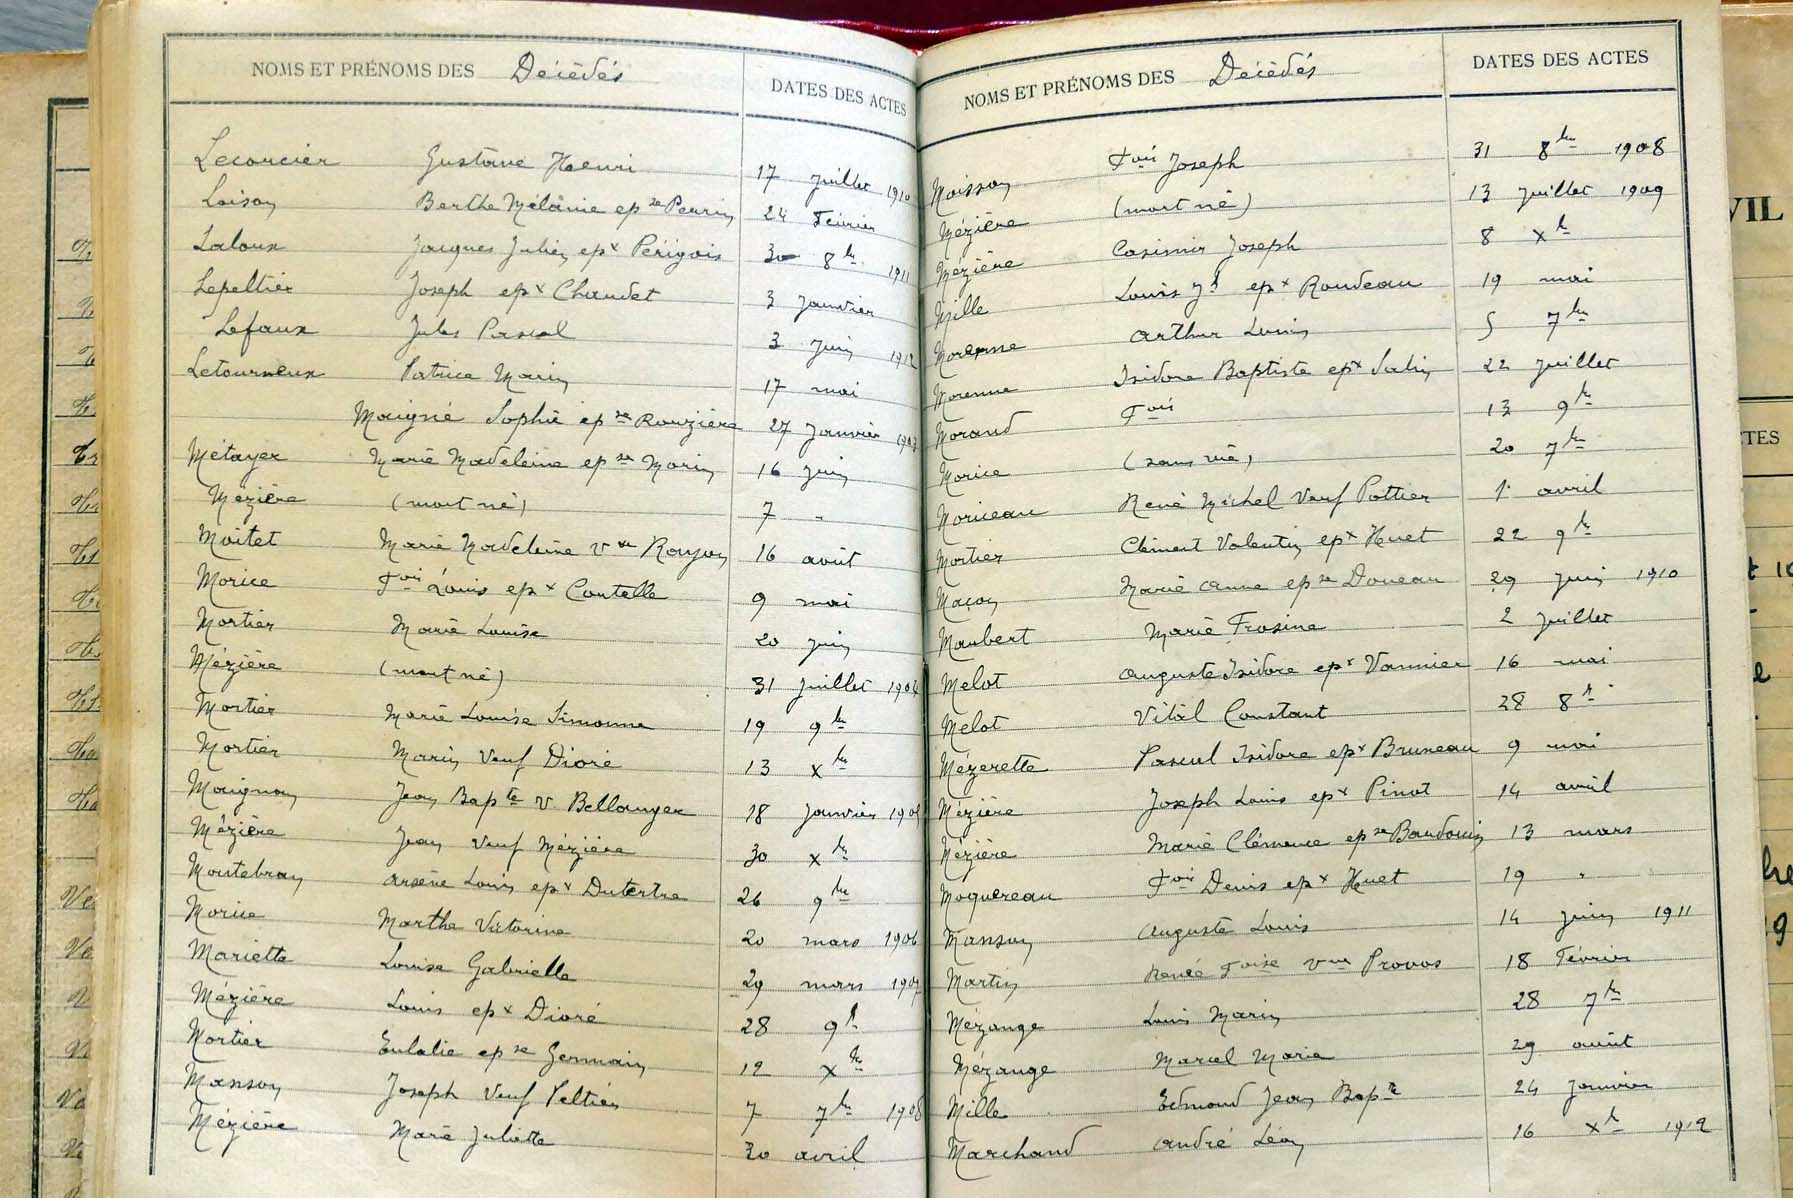 NOMS ET PRÉNOMS DES Décédés DATES DES ACTES
Lecourcier Gustave Henri 17 Juillet 1910
Loison Berthe Mélanie epse Perrin 24 Février
Laloux Jacques Julien epx Périgois 30 8bre 1911
Lepeltier Joseph epx Chaudet 3 Janvier
Lefaux Jules Pascal 3 Juin 1912
Letourneux Patrice Marin 17 mai
Maigné Sophie epse Rouzière 27 Janvier 1903
Métayer Marie Madeleine epse Morin 16 Juin
Mézière (mort né) 7 "
Moitet Marie Madeleine vve Roujou 16 août
Morice Fois Louis epx Coutelle 9 mai
Mortier Marie Louise 20 Juin
Mézière (mort né) 31 Juillet 1904
Mortier Marie Louise Simonne 19 9bre
Mortier Marin Veuf Dioré 13 Xbre
Maignan Jean Bapte v Bellanger 18 Janvier 1905
Mézière Jean Veuf Mézière 30 Xbre
Montebran Arsène Louis epx Dutertre 26 9bre
Morice Marthe Victorine 20 mars 1906
Mariette Louise Gabrielle 29 mars 1907
Mézière Louis epx Dioré 28 9b
Mortier Eulalie epse Germain 12 Xbre
Manson Joseph Veuf Peltier 7 7bre 1908
Mézière Marie Juliette 30 avril
NOMS ET PRÉNOMS DES Décédés DATES DES ACTES
Moisson Fois Joseph 31 8bre 1908
Mézière (mort né) 13 Juillet 1909
Mézière Casimir Joseph 8 Xb
Mille Louis Jh epx Rondeau 19 mai
Morenne Arthur Louis 5 7bre
Morenne Isidore Baptiste epx Salin 22 Juillet
Morand Fois 13 9b
Morice (sans vie) 20 7b
Moriceau René Michel Veuf Pottier 1er avril
Mortier Clément Valentin epx Huet 22 9b
Maçon Marie Anne epse Doueau 29 Juin 1910
Maubert Marie Frosine 2 Juillet
Melot Auguste Isidore epx Vannier 16 mai
Melot Vital Constant 28 8b
Mézerette Pascal Isidore epx Bruneau 9 mai
Mézière Joseph Louis epx Pinot 14 avril
Mézière Marie Clémence epse Baudouin 13 mars
Moquereau Fois Denis epx Huet 19 "
Manson Auguste Louis 14 Juin 1911
Martin Renée Foise vve Provos 18 Février
Mézange Louis Marin 28 7bre
Mézange Marcel Marie 29 août
Mille Edmond Jean Bapte 24 Janvier
Marchand André Léon 16 Xb 1912